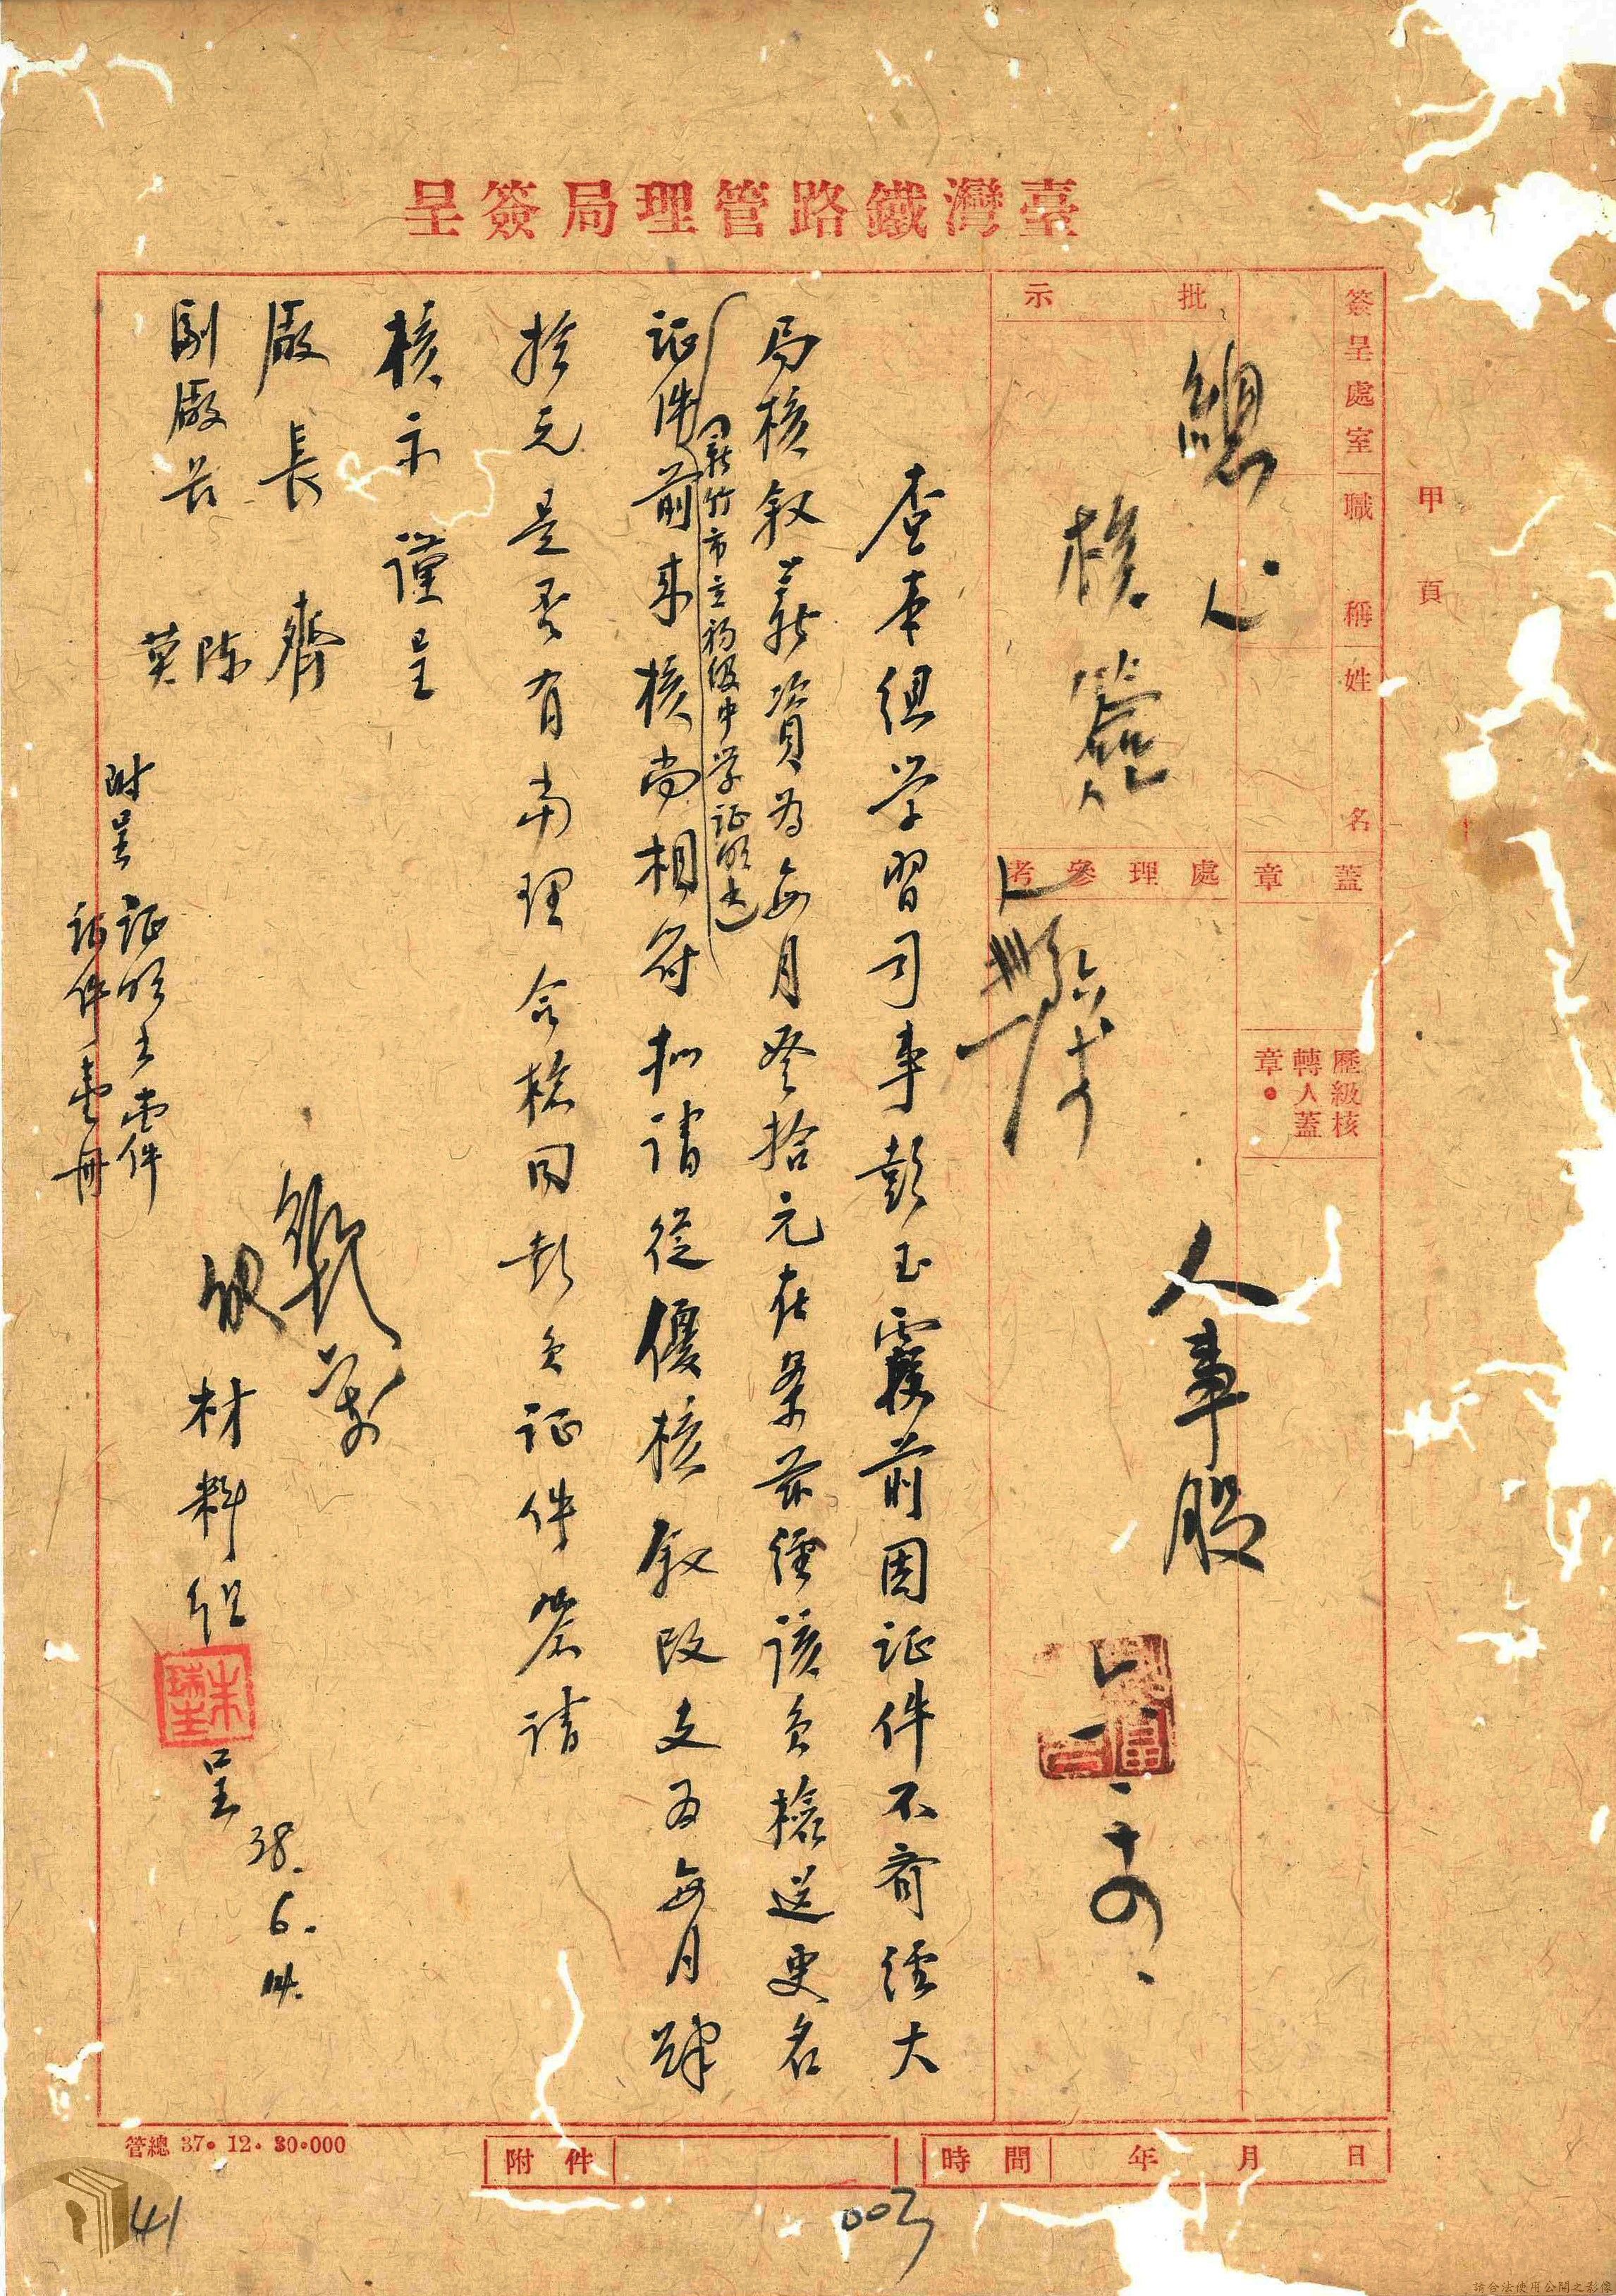 臺灣鐵路管理局簽呈
甲頁
簽呈處室職稱姓名
蓋章
歷級核
轉人蓋
章。
批示
總
人
核簽
處理參考
人事股
六十四
查本組学習司事彭玉霞前因证件不齊經大
局核叙薪資為每月叁拾元在案茲經該員檢送更名
证件(新竹市立初級中学证明书)前来核尚相符拟请從優核叙改支为每月肆
拾元是否有当理合檢同彭員证件簽请
核示謹呈
廠長齊
副廠長陈
莫
材料组
朱
呈
38.6.14.
附呈证明书壹件
证件壹册
管總 37.12.30.000
附件
時間 年 月 日
003
41
請合法使用公開之影像